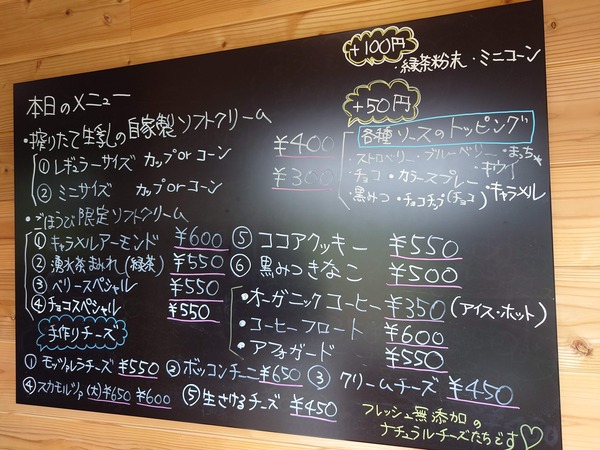 +100円
・緑茶粉末・ミニコーン
本日のメニュー
・搾りたて生乳の自家製ソフトクリーム
① レギュラーサイズ カップorコーン ¥400
② ミニサイズ カップorコーン ¥300
+50円
各種ソースのトッピング
・ストロベリー・ブルーベリー・まっちゃ
・チョコ・カラースプレー・キウイ
・黒みつ・チョコチップ(チョコ)・キャラメル
・ごほうび限定ソフトクリーム
① キャラメルアーモンド ¥600
② 湧水茶まみれ(緑茶) ¥550
③ ベリースペシャル ¥550
④ チョコスペシャル ¥550
⑤ ココアクッキー ¥550
⑥ 黒みつきなこ ¥500
・オーガニックコーヒー ¥350 (アイス・ホット)
・コーヒーフロート ¥600
・アフォガード ¥550
手作りチーズ
① モッツァレラチーズ ¥550 ② ボッコンチーニ ¥650 ③ クリームチーズ ¥450
④ スカモルツァ (大)¥650 ¥600 ⑤ 生さけるチーズ ¥450
フレッシュ無添加の
ナチュラルチーズたちです♡